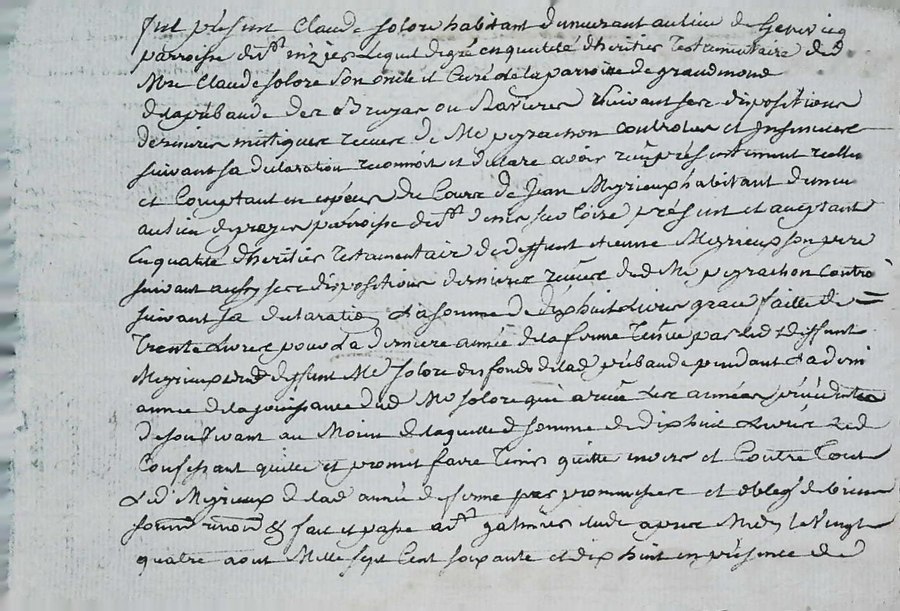 fut présent Claude Solore habitant demeurant au lieu de
parroisse de lequel de gré en qualité d'héritier testamentaire dud
Mre Claude Solore son oncle et curé de la parroisse de grandmond
de la prébande des ou Ravieres suivant ses dispositions
dernieres mistiques receues de Me peyrachon controlées et insinuées
suivant sa declaration reconnoit et declare avoir reçu présentement réellement
et comptant en espéces du Cours de Jean Meyrieux habitant demeu
au lieu de parroisse de st denis sur Loire présent et acceptant
en qualité d'héritier testamentaire de deffunt etienne Meyrieux son pere
suivant aussy ses dispositions dernieres reçues dud Me peyrachon Contro
suivant sa declaration La somme de dix huit Livres grace faitte de
Trente Livres pour La derniere année de la ferme Tenüe par Led deffunt
Meyrieux dud deffunt Me Solore des fonds de lad prébande pendant La derni
année de la jouissance dud Me Solore qui a les années précédentes
de son vivant au Moien de laquelle somme de dix huit Livres Led
Confessant quitte et promet faire Tenir quitte envers et Contre Tous
Led Meyrieux de lad année de ferme par promesse et oblige de biens
soumis renon & fait et passé a st galmier etude apres Midy le Vingt
quatre aout Mille sept Cent soixante et dix huit en présence de